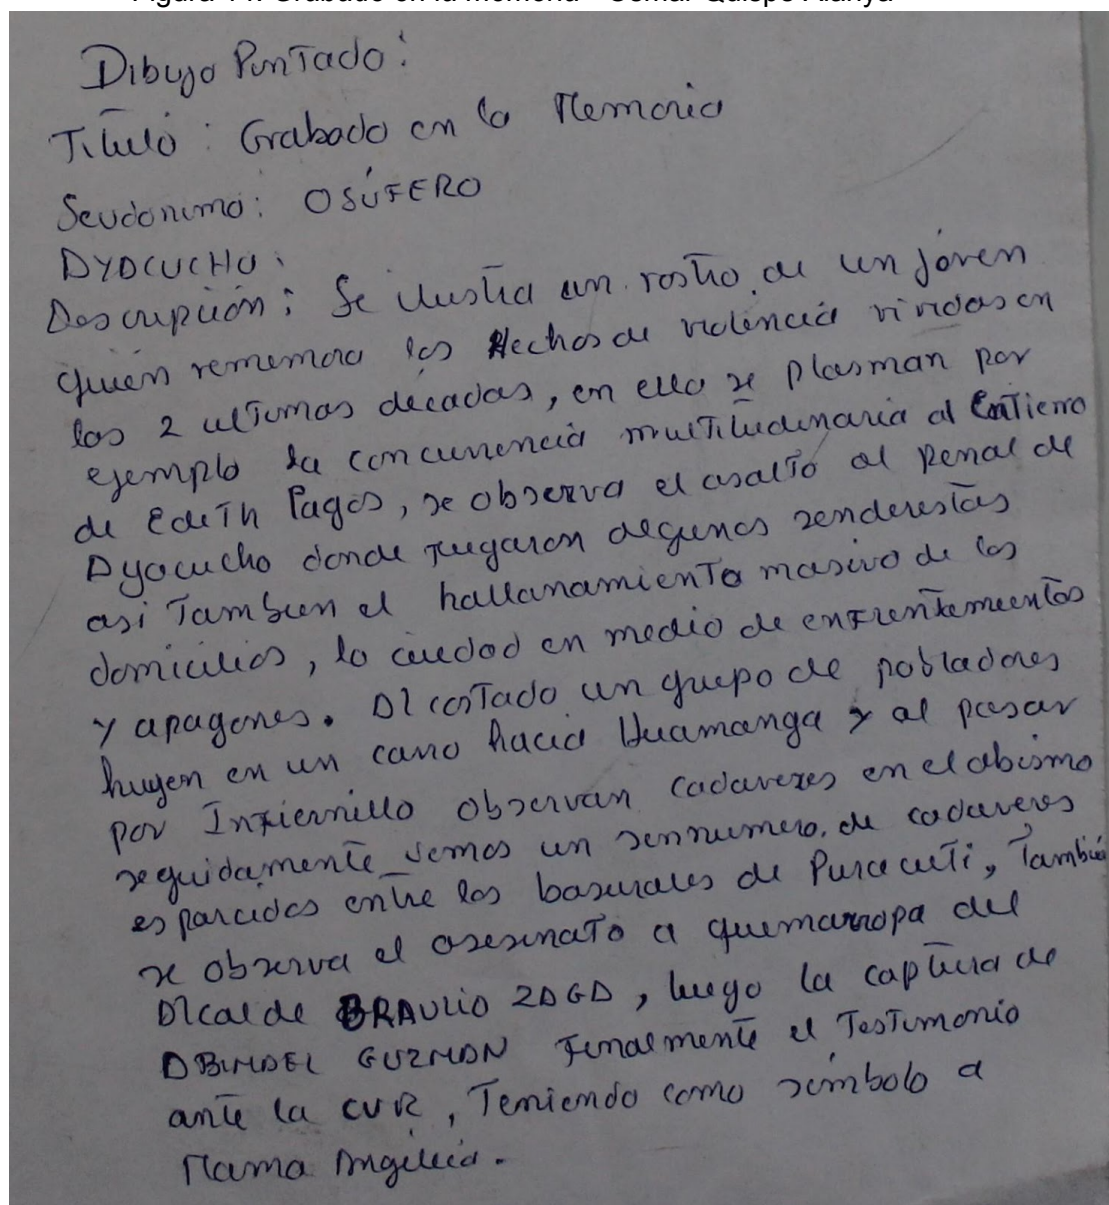 Dibujo Pintado:
Titulo: Grabado en la Memoria
Seudonimo: OSÚFERO
AYACUCHO:
Descripción: Se ilustra un rostro de un jóven
quién rememora los Hechos de violencia vividas en
las 2 ultimas decadas, en ello se plasman por
ejemplo la concurrencia multitudinaria al Entierro
de Edith Lagos, se observa el asalto al Penal de
Ayacucho donde fugaron algunos senderistas
asi Tambien el hallanamiento masivo de los
domicilios, la ciudad en medio de enfrentamientos
y apagones. Al costado un grupo de pobladores
huyen en un carro hacia Huamanga y al pasar
por Infiernillo observan cadaveres en el abismo
seguidamente vemos un sennumero de cadaveres
esparcidos entre los basurales de Puracuti, Tambien
se observa el asesinato a quemarropa del
Alcalde BRAULIO ZAGA, luego la captura de
ABIMAEL GUZMAN Finalmente el Testimonio
ante la CVR, Teniendo como simbolo a
Mama Angélica.